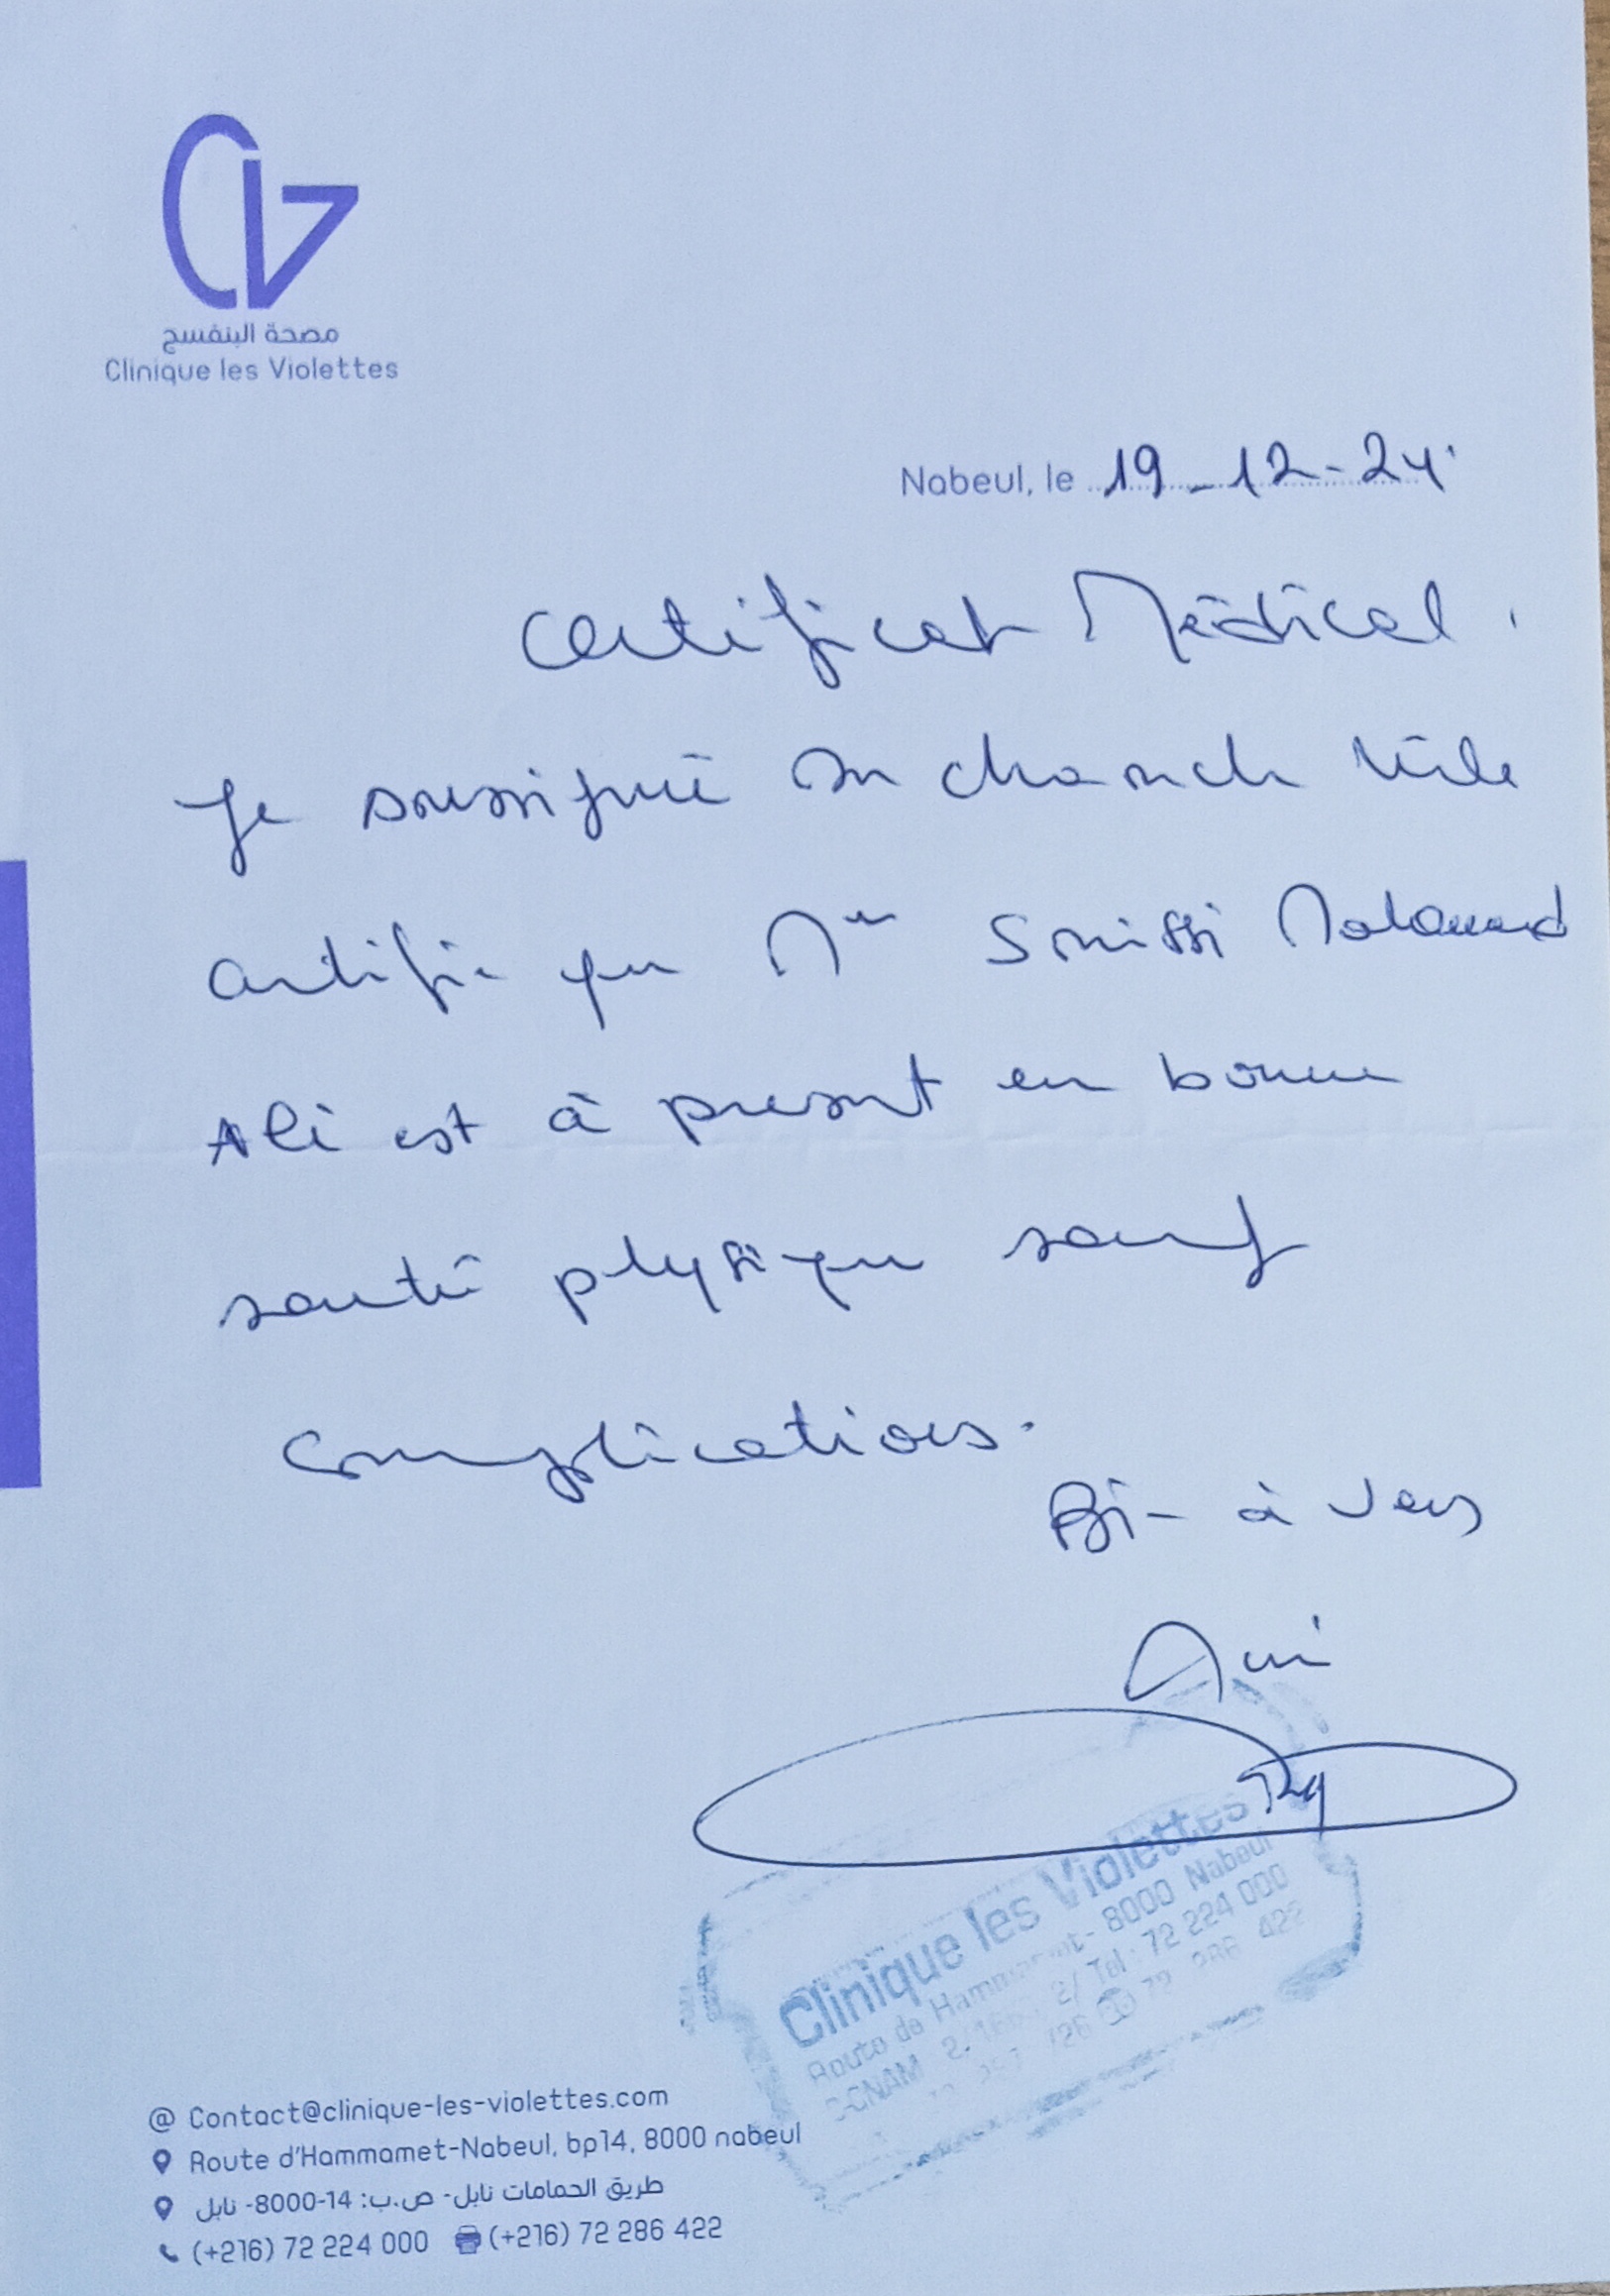 مصحة البنفسج
Clinique les Violettes
Nabeul, le 19-12-24
Certificat Médical.
Je soussigné Dr
certifie que Mr Souissi Mohamed
Ali est à present en bonne
santé physique sauf
complications.
à
Clinique les Violettes
Route de Hammamet - 8000 Nabeul
Tel: 72 224 000
422
Contact@clinique-les-violettes.com
Route d'Hammamet-Nabeul, bp14, 8000 nabeul
طريق الحمامات نابل- ص.ب: 14-8000- نابل
(+216) 72 224 000 (+216) 72 286 422